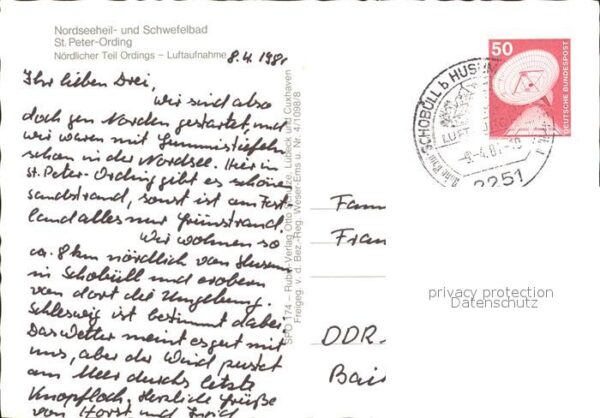 Nordseeheil- und Schwefelbad
St. Peter-Ording
Nördlicher Teil Ordings – Luftaufnahme
8.4.1981
Ihr lieben Drei,
wir sind also
doch gen Norden gestartet, und
wir waren mit Gummistiefeln
schon in der Nordsee. Hier in
St. Peter-Ording gibt es schöne
Sandstrand, sonst ist am Fest
land alles nur Grünstrand.
Wir wohnen so
ca. 8 km nördlich von Husum
in Schobüll und erobern
von dort die Umgebung.
Schleswig ist bestimmt dabei
Das Wetter meint es gut mit
uns, aber der Wind pustet
am Meer durchs letzte
Knopfloch. Herzliche Grüße
von Horst und
SPO 174 – Rubin-Verlag Otto Schulze, Lübeck und Cuxhaven
Freigeg. v. d. Bez.-Reg. Weser-Ems u. Nr. 4/1098/8
SCHOBÜLL b HUSUM
LUFT
-9.-4.81-10
2251
50
DEUTSCHE BUNDESPOST
Fam
Fran
privacy protection
Datenschutz
DDR-
Bai